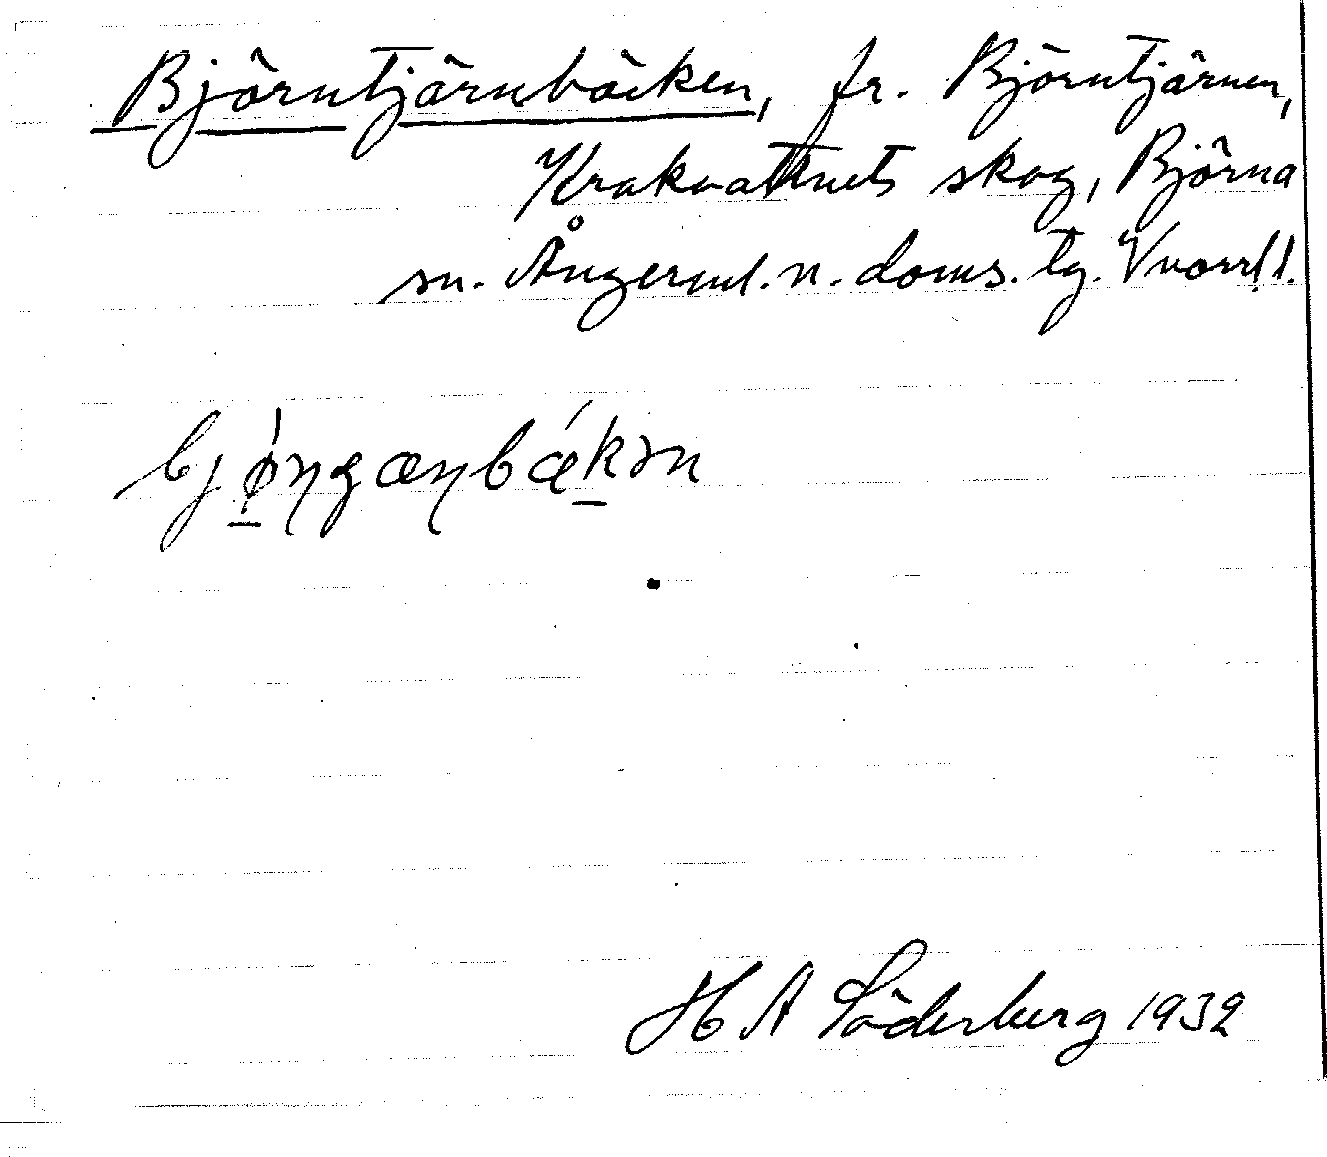 Björntjärnbäcken, fr. Björntjärnen,
Krakvattnets skog, Björna
sn. Ångerml. n. doms. tg. Vnorrl l.
bjǿŋgæŋbǽkən
H A Söderberg 1932